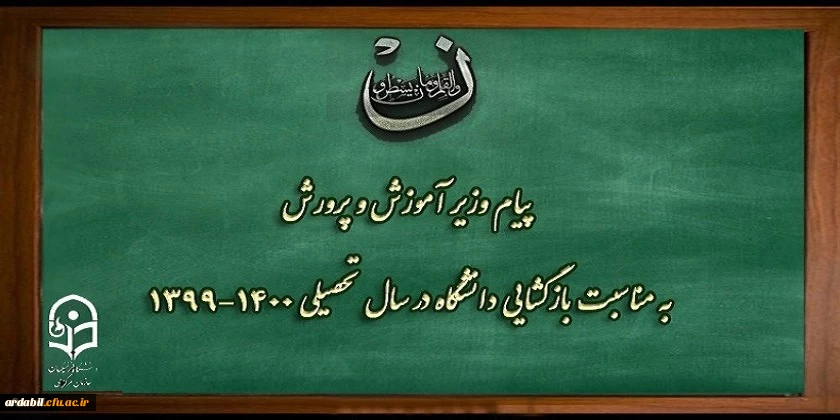 ن والقلم وما یسطرون
پیام وزیر آموزش و پرورش
به مناسبت بازگشایی دانشگاه در سال تحصیلی ۱۴۰۰-۱۳۹۹
دانشگاه فرهنگیان
سازمان مرکزی
ardabil.cfu.ac.ir